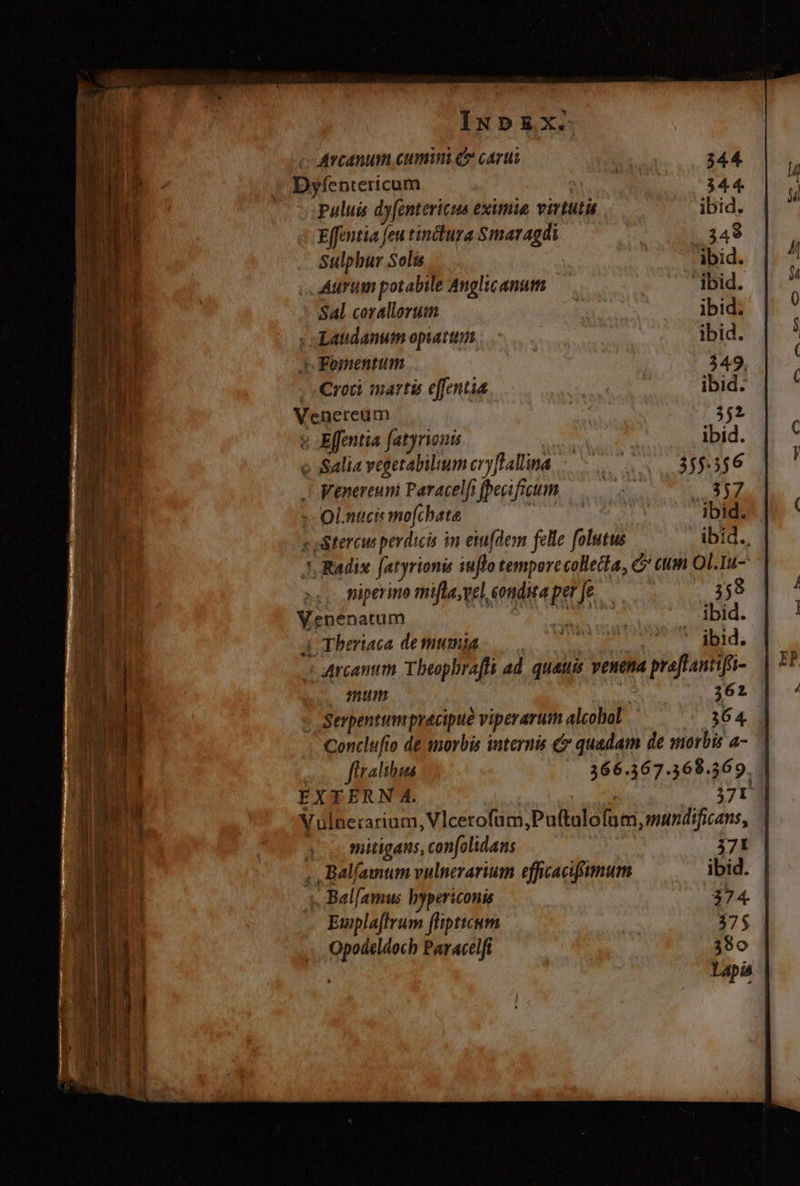 INDEX.
Arcanum cumini & carui 344
Dyſentericum 344
Puluis dyſentericus eximiæ virtutis ibid.
Eſſentia ſeu tinctura Smaragdi 348
Sulphur Solis ibid.
Aurum potabile Anglicanum ibid.
Sal corallorum ibid.
Laudanum opiatum ibid.
Fomentum 349.
Croci martis eſſentia ibid.
Venereum 352
Eſſentia ſatyrionis ibid.
Salia vegetabilium cryſtallina 355.356
Venereum Paracelſi ſpecificum 357
Ol. nucis moſchatæ ibid.
Stercus perdicis in eiuſdem felle ſolutus ibid.
Radix ſatyrionis iuſto tempore collecta, & cum Ol. Iu-
niperino miſta, vel condita per ſe 358
Venenatum ibid.
Theriaca de mumia ibid.
Arcanum Theophraſti ad quæuis venena præſtantiſſi-
mum 362
Serpentum præcipuè viperarum alcohol 364
Concluſio de morbis internis & quædam de morbis a-
ſtralibus 366.367.368.369.
EXTERNA. 371
Vulnerarium, Vlceroſum, Puſtuloſum, mundificans,
mitigans, conſolidans 371
Balſamum vulnerarium efficaciſſimum ibid.
Balſamus hypericonis 374
Emplaſtrum ſtipticum 375
Opodeldoch Paracelſi 380
Lapis